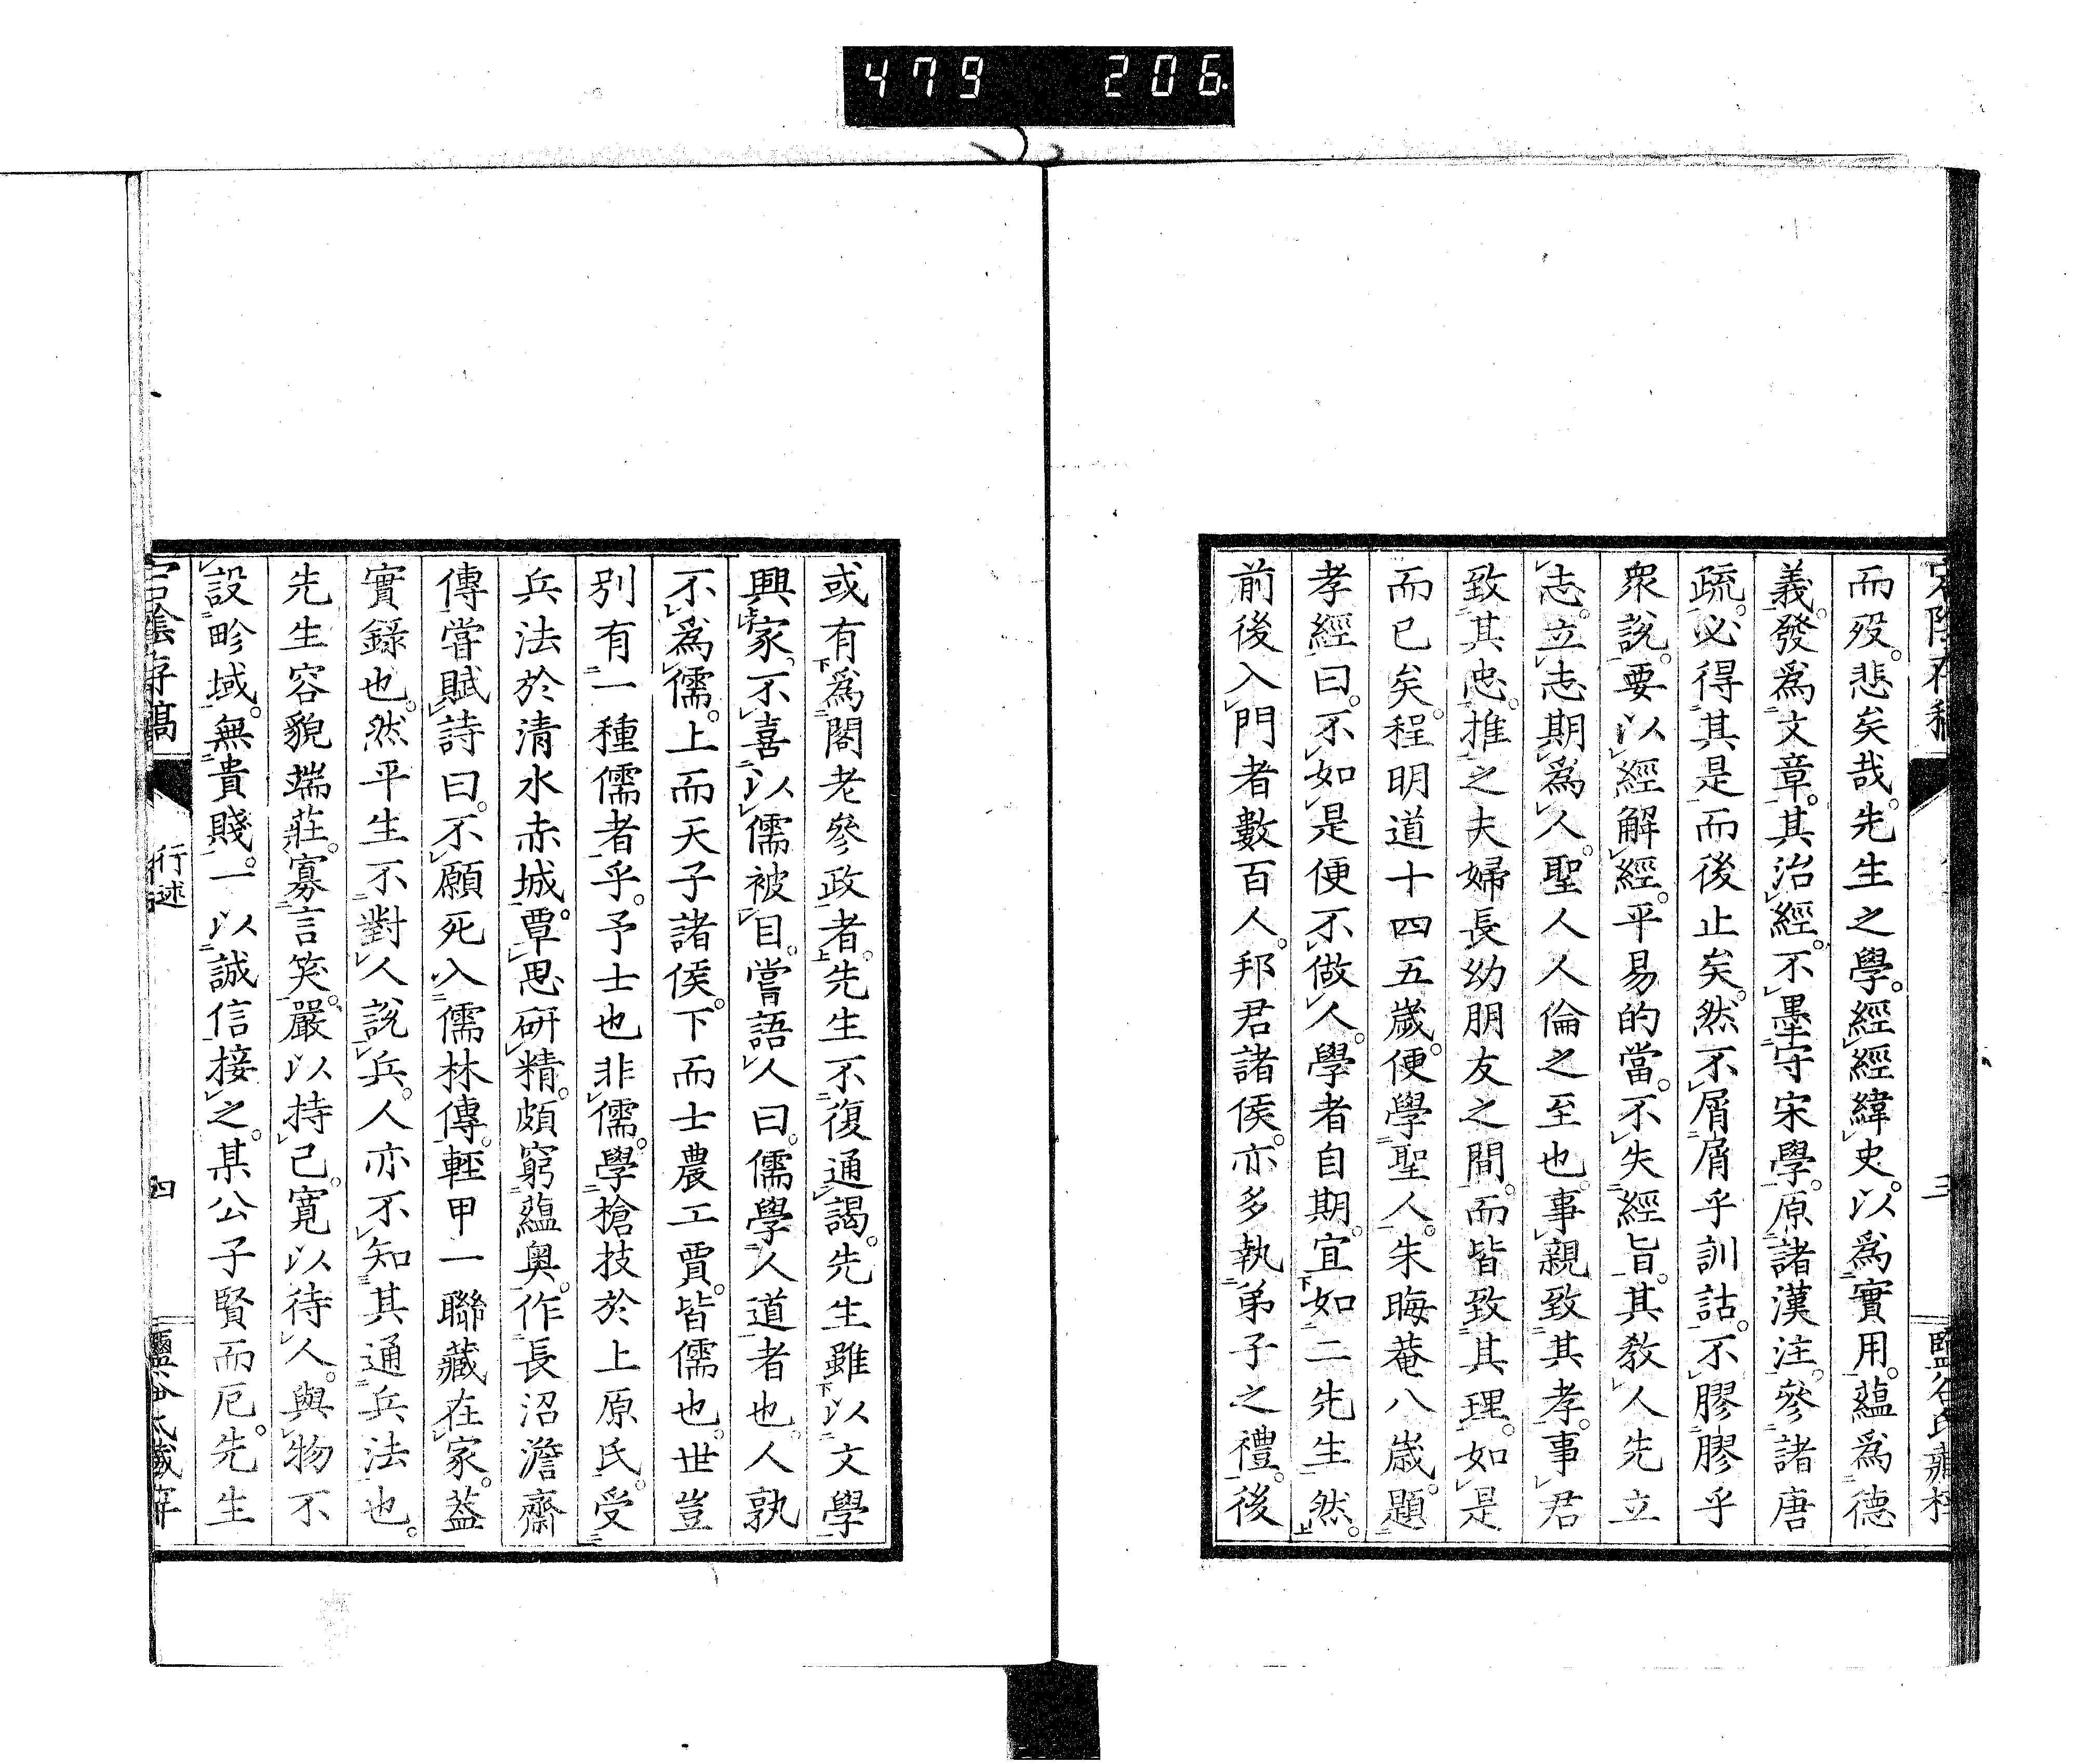 479 206
而歿。悲矣哉。先生之學。經經緯史。以爲實用。蘊爲德
義。發爲文章。其治經。不墨守宋學。原諸漢注。參諸唐
疏。必得其是而後止矣。然不屑屑乎訓詁。不膠膠乎
衆說。要以經解經。平易的當。不失經旨。其教人先立
志。立志期爲人。聖人人倫之至也。事親致其孝。事君
致其忠。推之夫婦長幼朋友之間。而皆致其理。如是
而已矣。程明道十四五歲。便學聖人。朱晦菴八歲。題
孝經曰。不如是便不做人。學者自期。宜如二先生然。
前後入門者數百人。邦君諸侯。亦多執弟子之禮。後
或有爲閣老參政者。先生不復通謁。先生雖以文學
興家。不喜以儒被目。嘗語人曰。儒學人道者也。人孰
不爲儒。上而天子諸侯。下而士農工賈。皆儒也。世豈
別有一種儒者乎。予士也非儒。學槍技於上原氏。受
兵法於清水赤城。覃思研精。頗窮蘊奧。作長沼澹齋
傳。嘗賦詩曰。不願死入儒林傳。輕甲一聯藏在家。葢
實錄也。然平生不對人說兵。人亦不知其通兵法也。
先生容貌端莊。寡言笑。嚴以持己。寬以待人。與物不
設畛域。無貴賤。一以誠信接之。某公子賢而厄。先生
行述
四